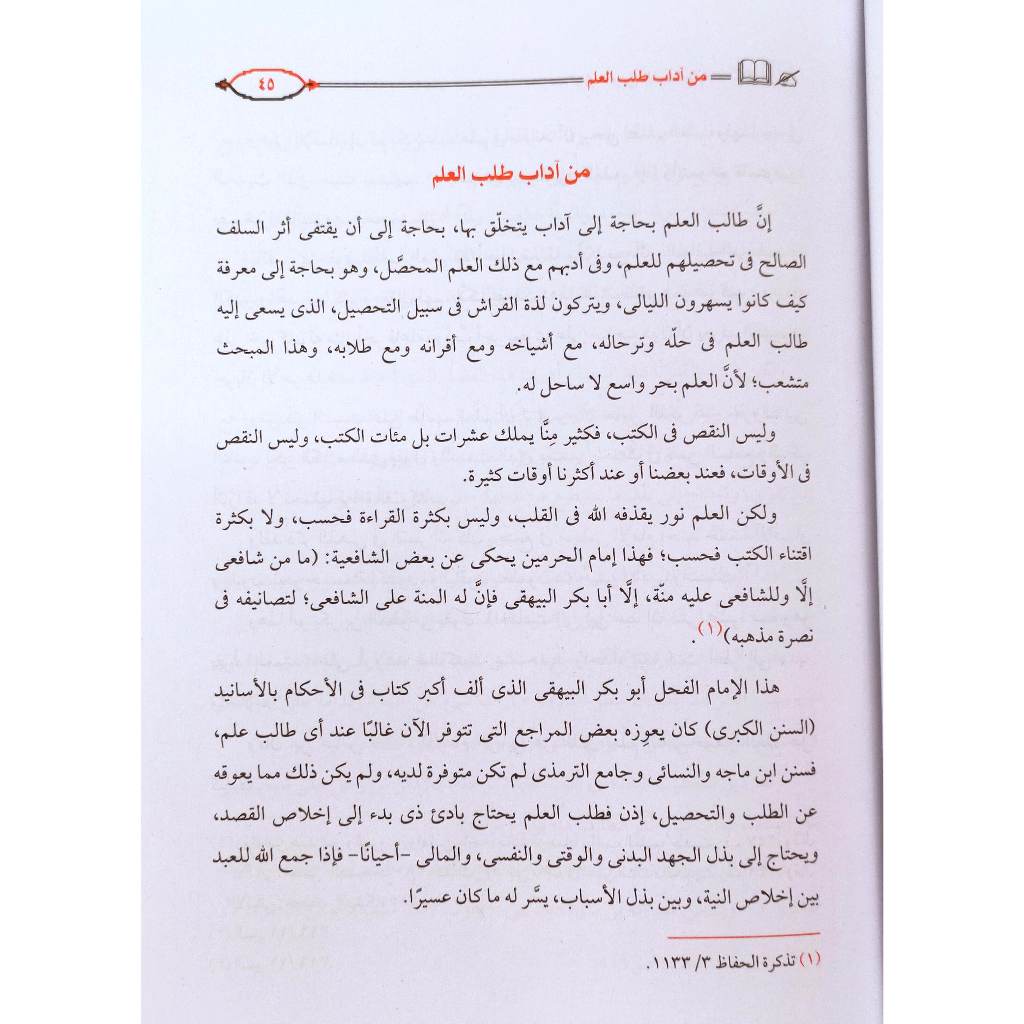 من آداب طلب العلم
٤٥
من آداب طلب العلم
إنَّ طالب العلم بحاجة إلى آداب يتخلّق بها، بحاجة إلى أن يقتفى أثر السلف
الصالح فى تحصيلهم للعلم، وفى أدبهم مع ذلك العلم المحصَّل، وهو بحاجة إلى معرفة
كيف كانوا يسهرون الليالى، ويتركون لذة الفراش فى سبيل التحصيل، الذى يسعى إليه
طالب العلم فى حلّه وترحاله، مع أشياخه ومع أقرانه ومع طلابه، وهذا المبحث
متشعب؛ لأنَّ العلم بحر واسع لا ساحل له.
وليس النقص فى الكتب، فكثير مِنَّا يملك عشرات بل مئات الكتب، وليس النقص
فى الأوقات، فعند بعضنا أو عند أكثرنا أوقات كثيرة.
ولكن العلم نور يقذفه الله فى القلب، وليس بكثرة القراءة فحسب، ولا بكثرة
اقتناء الكتب فحسب؛ فهذا إمام الحرمين يحكى عن بعض الشافعية: (ما من شافعى
إلَّا وللشافعى عليه منّة، إلَّا أبا بكر البيهقى فإنَّ له المنة على الشافعى؛ لتصانيفه فى
نصرة مذهبه)(١).
هذا الإمام الفحل أبو بكر البيهقى الذى ألف أكبر كتاب فى الأحكام بالأسانيد
(السنن الكبرى) كان يعوِزه بعض المراجع التى تتوفر الآن غالبًا عند أى طالب علم،
فسنن ابن ماجه والنسائى وجامع الترمذى لم تكن متوفرة لديه، ولم يكن ذلك مما يعوقه
عن الطلب والتحصيل، إذن فطلب العلم يحتاج بادئ ذى بدء إلى إخلاص القصد،
ويحتاج إلى بذل الجهد البدنى والوقتى والنفسى، والمالى -أحيانًا- فإذا جمع الله للعبد
بين إخلاص النية، وبين بذل الأسباب، يسَّر له ما كان عسيرًا.
(١) تذكرة الحفاظ ٣/ ١١٣٣.